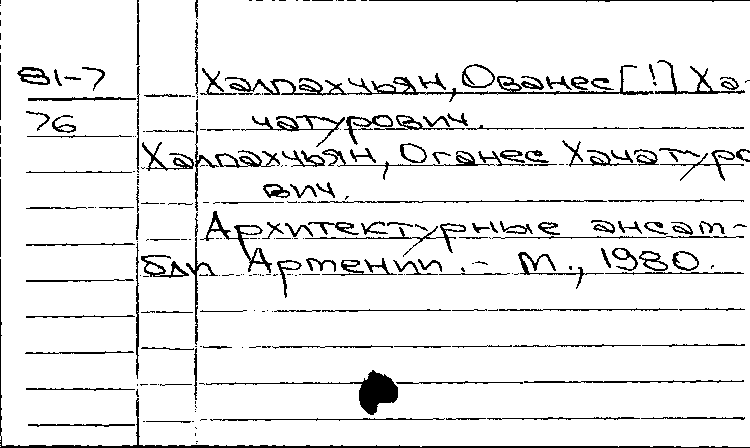 81-7 Халпахчьян, Ованес [!] Ха-
76 чатурович.
Халпахчьян, Оганес Хачатуро
вич.
Архитектурные ансам-
бли Армении. - М., 1980.